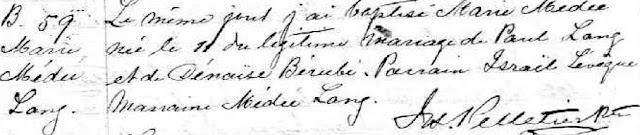 B. 59
Marie
Médée
Lang.
Le même jour j'ai baptisé Marie Médée
née le 11 du légitime mariage de Paul Lang
et de Dénaise Bérubé. Parrain Israël Levêque
Marraine Médée Lang.
Jos Pelletier Ptre